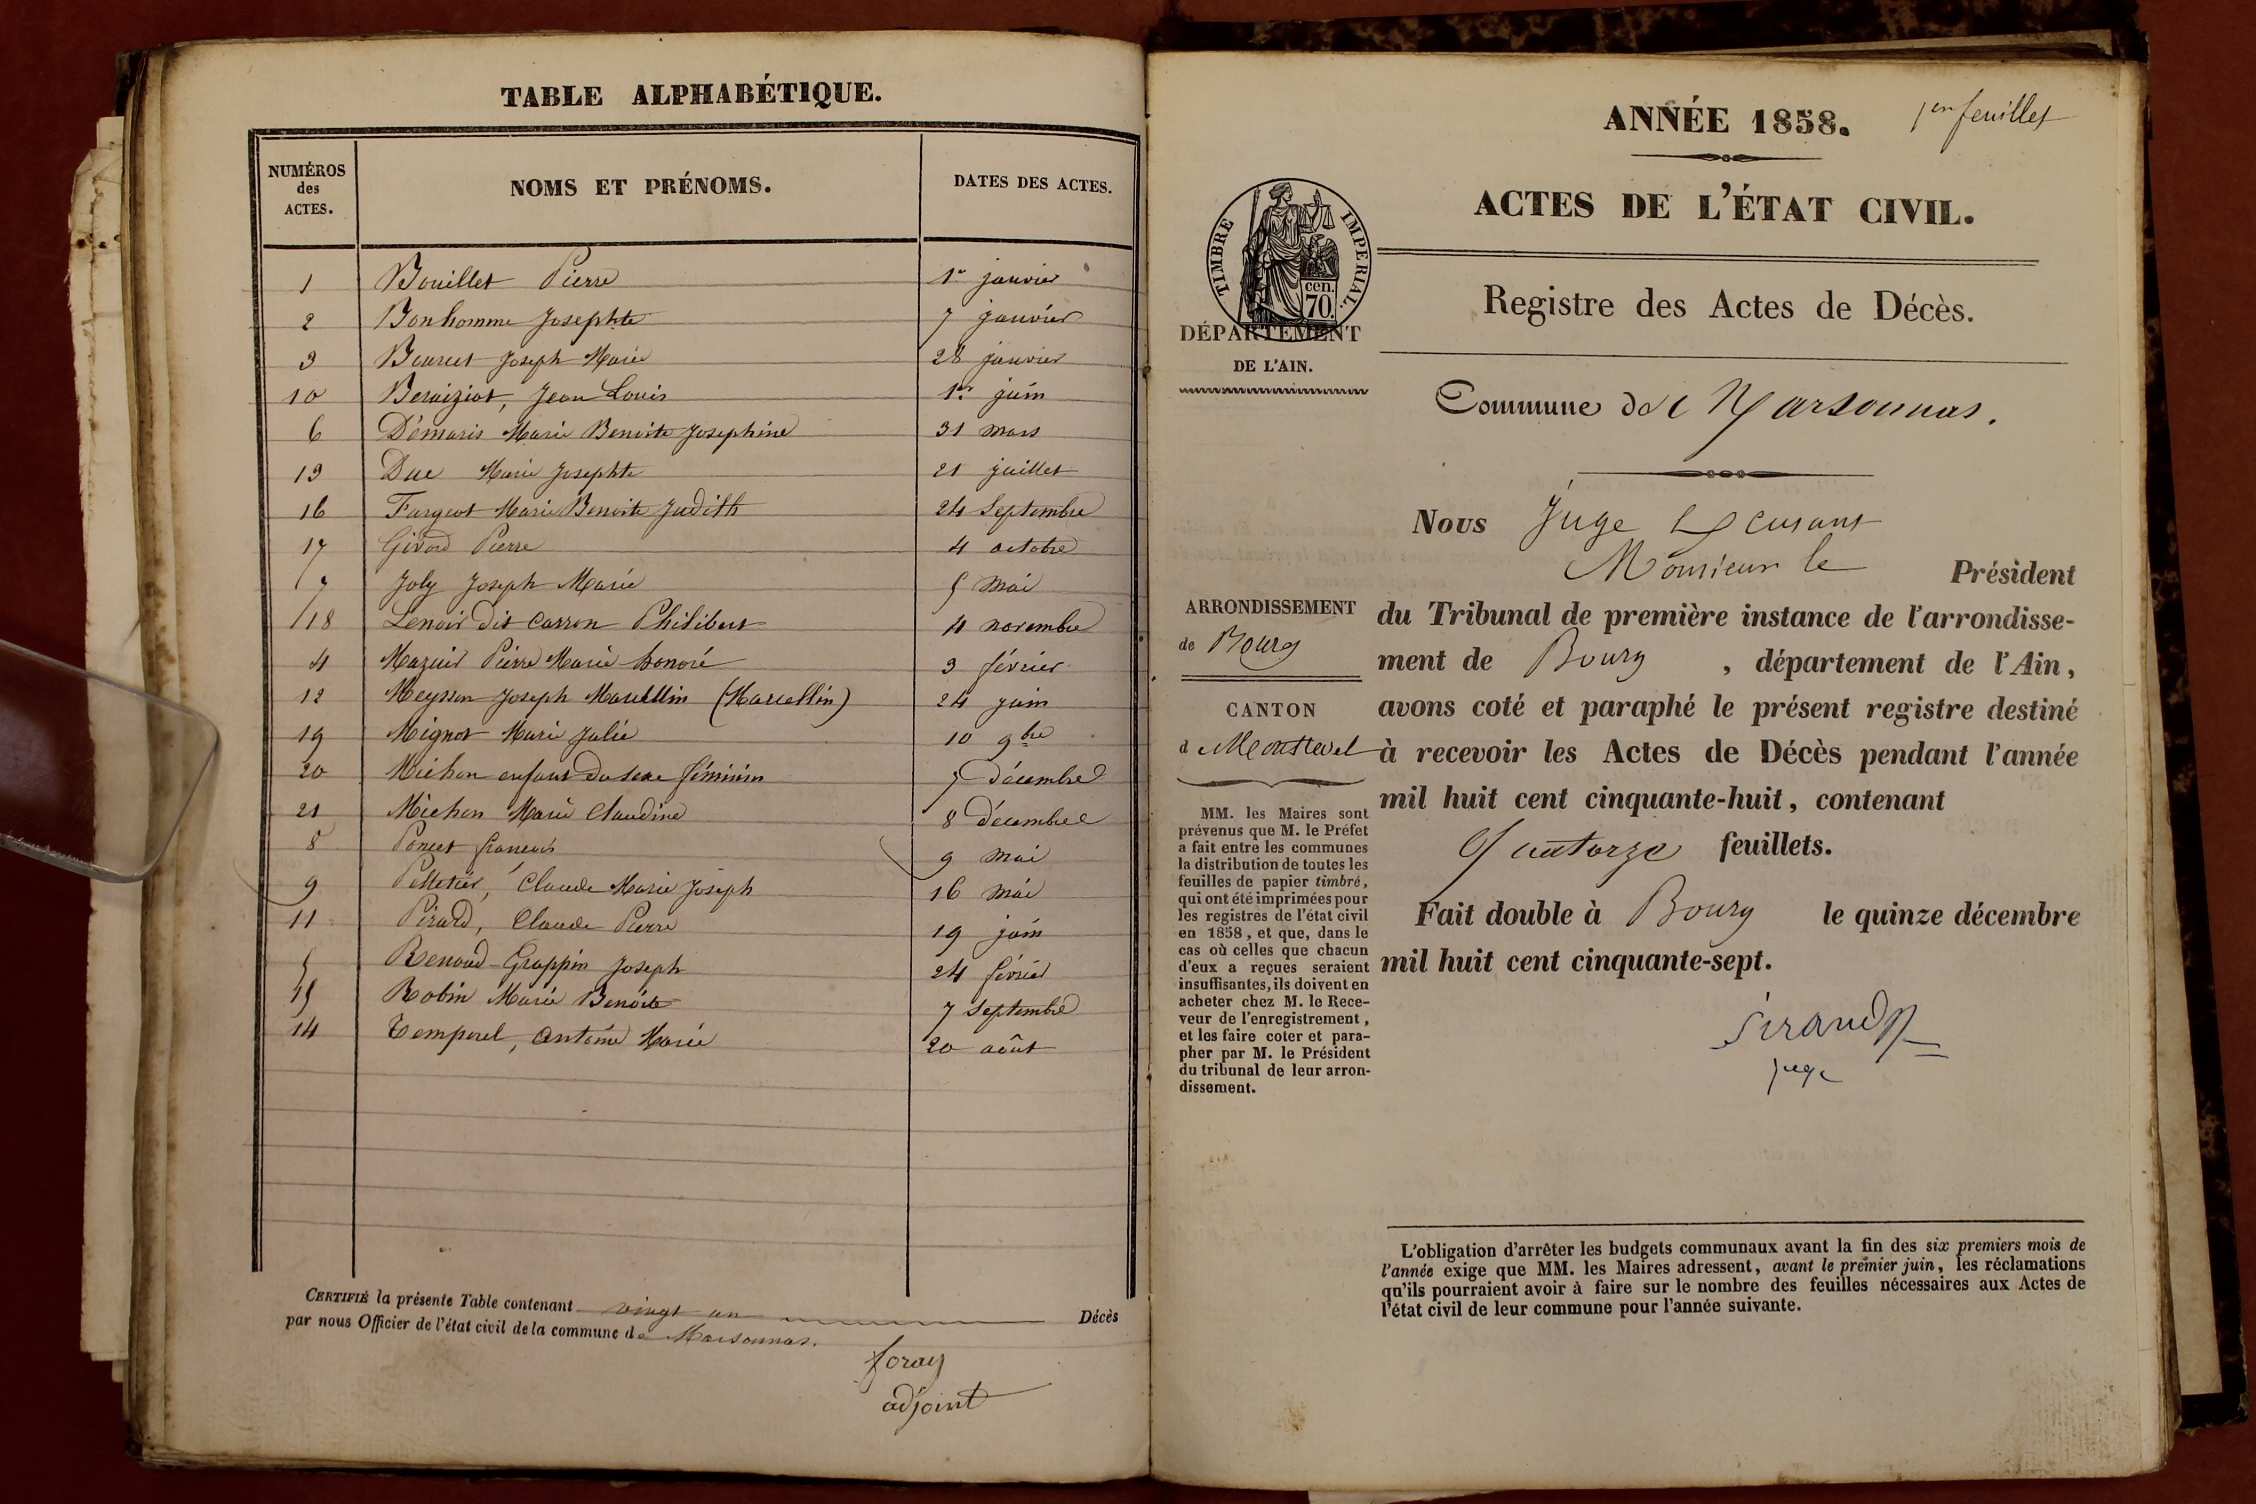 TABLE ALPHABÉTIQUE.
NUMÉROS des ACTES. NOMS ET PRÉNOMS. DATES DES ACTES.
1 Bouillet Pierre 1er janvier
2 Bonhomme Josephte 7 janvier
3 Bourcet Joseph Marie 28 janvier
10 Beraiziat, Jean Louis 1er juin
6 Démaris Marie Benoite Josephine 31 mars
13 Duc Marie Josephte 21 juillet
16 Fargeot Marie Benoite Judith 24 Septembre
17 Girard Pierre 4 octobre
7 Joly Joseph Marie 5 mai
18 Lenoir dit Carron Philibert 4 novembre
4 Mazuir Pierre Marie honoré 3 février
12 Meysson Joseph Marcellin (Marcellin) 24 juin
19 Mignot Marie Julie 10 9bre
20 Michon enfant du sexe féminin 7 décembre
21 Michon Marie Claudine 8 décembre
8 Poncet francois 9 mai
9 Pelletier, Claude Marie Joseph 16 mai
11 Pirard, Claude Pierre 19 juin
5 Renoud-Grappin Joseph 24 février
15 Robin Marie Benoite 7 septembre
14 Temporel, Antoine Marie 20 août
CERTIFIÉ la présente Table contenant vingt un Décès
par nous Officier de l'état civil de la commune de Marsonnas.
foray
adjoint
1er feuillet
ANNÉE 1858.
ACTES DE L'ÉTAT CIVIL.
TIMBRE IMPERIAL.
cen.
70.
DÉPARTEMENT
DE L'AIN.
Registre des Actes de Décès.
Commune de Marsonnas.
Nous Juge
Monsieur le Président
du Tribunal de première instance de l'arrondisse-
ment de Bourg, département de l'Ain,
avons coté et paraphé le présent registre destiné
à recevoir les Actes de Décès pendant l'année
mil huit cent cinquante-huit, contenant
Quatorze feuillets.
Fait double à Bourg le quinze décembre
mil huit cent cinquante-sept.
Sirand
juge
ARRONDISSEMENT
de Bourg
CANTON
de Montrevel
MM. les Maires sont
prévenus que M. le Préfet
a fait entre les communes
la distribution de toutes les
feuilles de papier timbré,
qui ont été imprimées pour
les registres de l'état civil
en 1858, et que, dans le
cas où celles que chacun
d'eux a reçues seraient
insuffisantes, ils doivent en
acheter chez M. le Rece-
veur de l'enregistrement,
et les faire coter et para-
pher par M. le Président
du tribunal de leur arron-
dissement.
L'obligation d'arrêter les budgets communaux avant la fin des six premiers mois de
l'année exige que MM. les Maires adressent, avant le premier juin, les réclamations
qu'ils pourraient avoir à faire sur le nombre des feuilles nécessaires aux Actes de
l'état civil de leur commune pour l'année suivante.